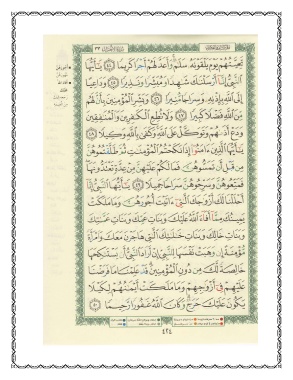 تَحِيَّتُهُمْ يَوْمَ يَلْقَوْنَهُ سَلَٰمٌ وَأَعَدَّ لَهُمْ أَجْرًا كَرِيمًا ٤٤ يَٰٓأَيُّهَا
ٱلنَّبِىُّ إِنَّآ أَرْسَلْنَٰكَ شَٰهِدًا وَمُبَشِّرًا وَنَذِيرًا ٤٥ وَدَاعِيًا
إِلَى ٱللَّهِ بِإِذْنِهِۦ وَسِرَاجًا مُّنِيرًا ٤٦ وَبَشِّرِ ٱلْمُؤْمِنِينَ بِأَنَّ لَهُم
مِّنَ ٱللَّهِ فَضْلًا كَبِيرًا ٤٧ وَلَا تُطِعِ ٱلْكَٰفِرِينَ وَٱلْمُنَٰفِقِينَ
وَدَعْ أَذَىٰهُمْ وَتَوَكَّلْ عَلَى ٱللَّهِ وَكَفَىٰ بِٱللَّهِ وَكِيلًا ٤٨
يَٰٓأَيُّهَا ٱلَّذِينَ ءَامَنُوٓا۟ إِذَا نَكَحْتُمُ ٱلْمُؤْمِنَٰتِ ثُمَّ طَلَّقْتُمُوهُنَّ
مِن قَبْلِ أَن تَمَسُّوهُنَّ فَمَا لَكُمْ عَلَيْهِنَّ مِنْ عِدَّةٍ تَعْتَدُّونَهَا
فَمَتِّعُوهُنَّ وَسَرِّحُوهُنَّ سَرَاحًا جَمِيلًا ٤٩ يَٰٓأَيُّهَا ٱلنَّبِىُّ إِنَّآ
أَحْلَلْنَا لَكَ أَزْوَٰجَكَ ٱلَّٰتِىٓ ءَاتَيْتَ أُجُورَهُنَّ وَمَا مَلَكَتْ
يَمِينُكَ مِمَّآ أَفَآءَ ٱللَّهُ عَلَيْكَ وَبَنَاتِ عَمِّكَ وَبَنَاتِ عَمَّٰتِكَ
وَبَنَاتِ خَالِكَ وَبَنَاتِ خَٰلَٰتِكَ ٱلَّٰتِى هَاجَرْنَ مَعَكَ وَٱمْرَأَةً
مُّؤْمِنَةً إِن وَهَبَتْ نَفْسَهَا لِلنَّبِىِّ إِنْ أَرَادَ ٱلنَّبِىُّ أَن يَسْتَنكِحَهَا
خَالِصَةً لَّكَ مِن دُونِ ٱلْمُؤْمِنِينَ قَدْ عَلِمْنَا مَا فَرَضْنَا
عَلَيْهِمْ فِىٓ أَزْوَٰجِهِمْ وَمَا مَلَكَتْ أَيْمَٰنُهُمْ لِكَيْلَا
يَكُونَ عَلَيْكَ حَرَجٌ وَكَانَ ٱللَّهُ غَفُورًا رَّحِيمًا ٥٠
٤٢٤